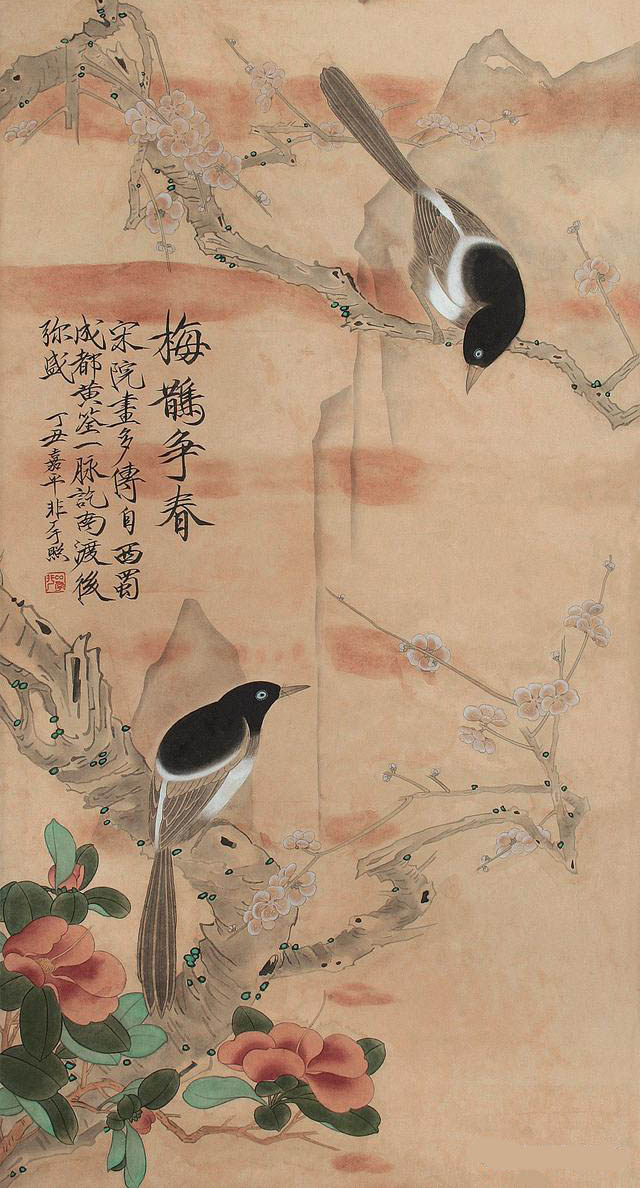 梅鵲争春
宋院畫多傳自西蜀
成都黄筌一脉訖南渡後
弥盛 丁丑嘉平非于照